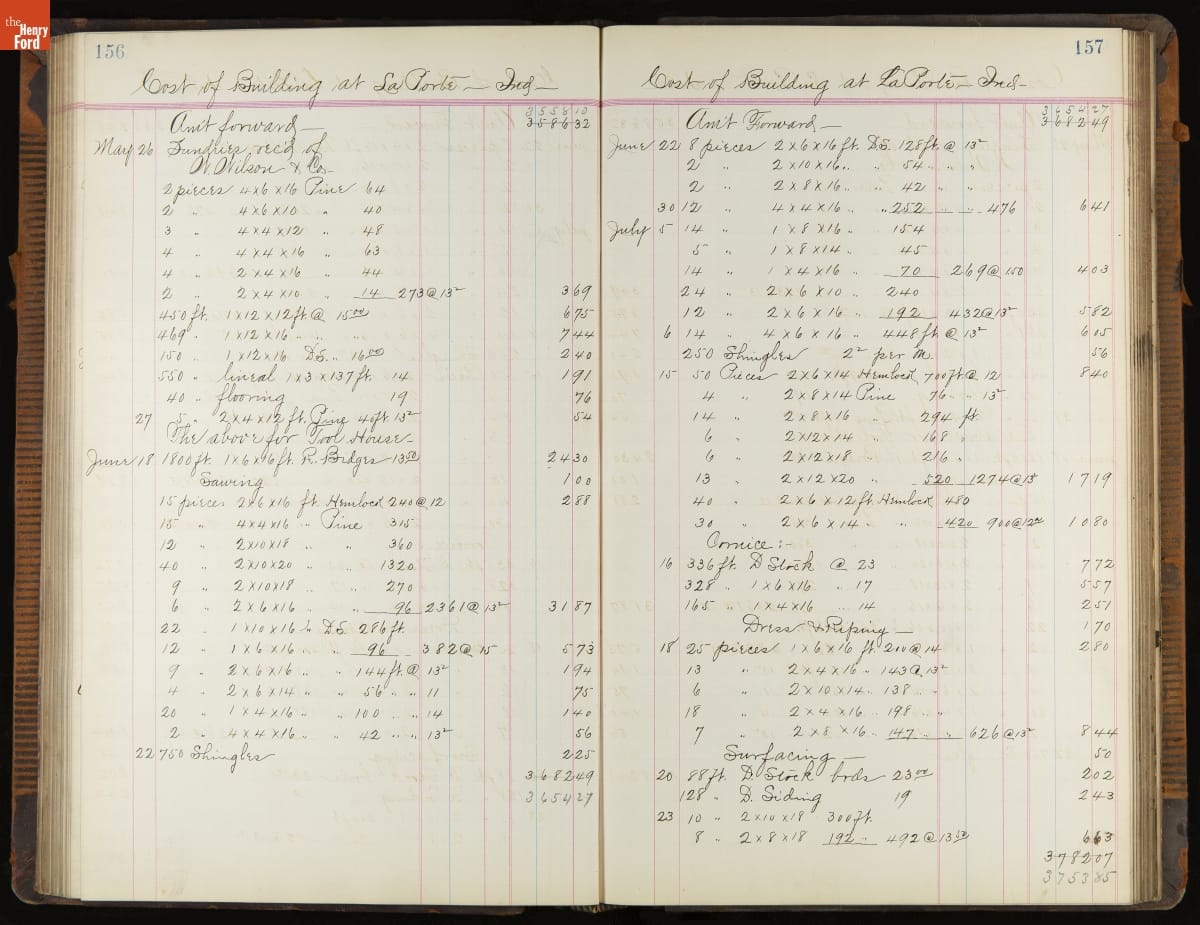 the Henry Ford
156
Cost of Building at La Porte - Ind -
3558 10
Am't forward - 3586 32
May 26 Sundries rec'd of
W. Wilson & Co -
2 pieces 4x6x16 Pine 64
2 " 4x6x10 " 40
3 " 4x4x12 " 48
4 " 4x4x16 " 63
4 " 2x4x16 " 44
2 " 2x4x10 " 14 273@13 ⁵⁰ 3 69
450 ft. 1x12x12 ft. @ 15 00 6 75
469 " 1x12x16 " " " 7 44
150 " 1x12x16 D.S. " 16 00 2 40
550 " lineal 1x3x137 ft. 14 1 91
40 " flooring 19 76
27 5 " 2x4x12 ft. Pine 40 ft. 13 ⁵⁰ 54
The above for Tool House -
June 18 1800 ft. 1x6x16 ft. R. Bridges 13 50 24 30
Sawing 1 00
15 pieces 2x6x16 ft. Hemlock 240 @ 12 2 88
15 " 4x4x16 " Pine 315
12 " 2x10x18 " " 360
40 " 2x10x20 " " 1320
9 " 2x10x18 " 270
6 " 2x6x16 " " 96 2361 @ 13 ⁵⁰ 31 87
22 " 1x10x16 " D.S. 286 ft.
12 " 1x6x16 " " 96 382 @ 15 5 73
9 " 2x6x16 " " 144 ft. @ 13 ⁵⁰ 1 94
4 " 2x6x14 " " 56 " " 11 75
20 " 1x4x16 " " 100 " " 14 1 40
2 " 4x4x16 " " 42 " " 13 ⁵⁰ 56
22 750 Shingles 2 25
3682 49
3654 27
157
Cost of Building at La Porte - Ind -
3654 27
Am't Forward - 3682 49
June 22 8 pieces 2x6x16 ft. D.S. 128 ft. @ 13 ⁵⁰
2 " 2x10x16 " " 54 " " "
2 " 2x8x16 " " 42 " "
30 12 " 4x4x16 " " 252 " " 476 6 41
July 5 14 " 1x8x16 " 154
5 " 1x8x14 " 45
14 " 1x4x16 " 70 269 @ 150 4 03
24 " 2x6x10 " 240
12 " 2x6x16 " 192 432 @ 13 ⁵⁰ 5 82
6 14 " 4x6x16 " 448 ft @ 13 ⁵⁰ 6 05
250 Shingles 2 ²⁵ per M. 56
15 50 Pieces 2x6x14 Hemlock 700 ft @ 12 8 40
4 " 2x8x14 Pine 76 " " 13 ⁵⁰
14 " 2x8x16 294 ft
6 " 2x12x14 " 168 "
6 " 2x12x18 " 216 "
13 " 2x12x20 " 520 1274 @ 13 ⁵⁰ 17 19
40 " 2x6x12 ft. Hemlock 480
30 " 2x6x14 " " 420 900 @ 12 00 10 80
Cornice :-
16 336 ft. D Stock @ 23 7 72
328 " 1x6x16 " 17 5 57
165 " 1x4x16 " 14 2 51
Dress & Riping - 1 70
18 25 pieces 1x6x16 ft 200 @ 14 2 80
13 " 2x4x16 " 143 @ 13 ⁵⁰
6 " 2x10x14 " 138 " "
18 " 2x4x16 " 198 " "
7 " 2x8x16 " 147 " " 626 @ 13 ⁵⁰ 8 44
Surfacing - 50
20 88 ft. D. Stock bods 23 00 2 02
128 " D. Siding 19 2 43
23 10 " 2x10x18 300 ft.
8 " 2x8x18 192 " 492 @ 13 50 6 63
3782 07
3753 85